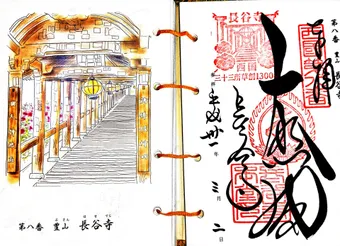 第八番 豊山 長谷寺
第八番 豊山 長谷寺
奉拝
大悲閣
長谷寺
平成卅一年三月二日
長谷寺
西国
三十三所草創1300